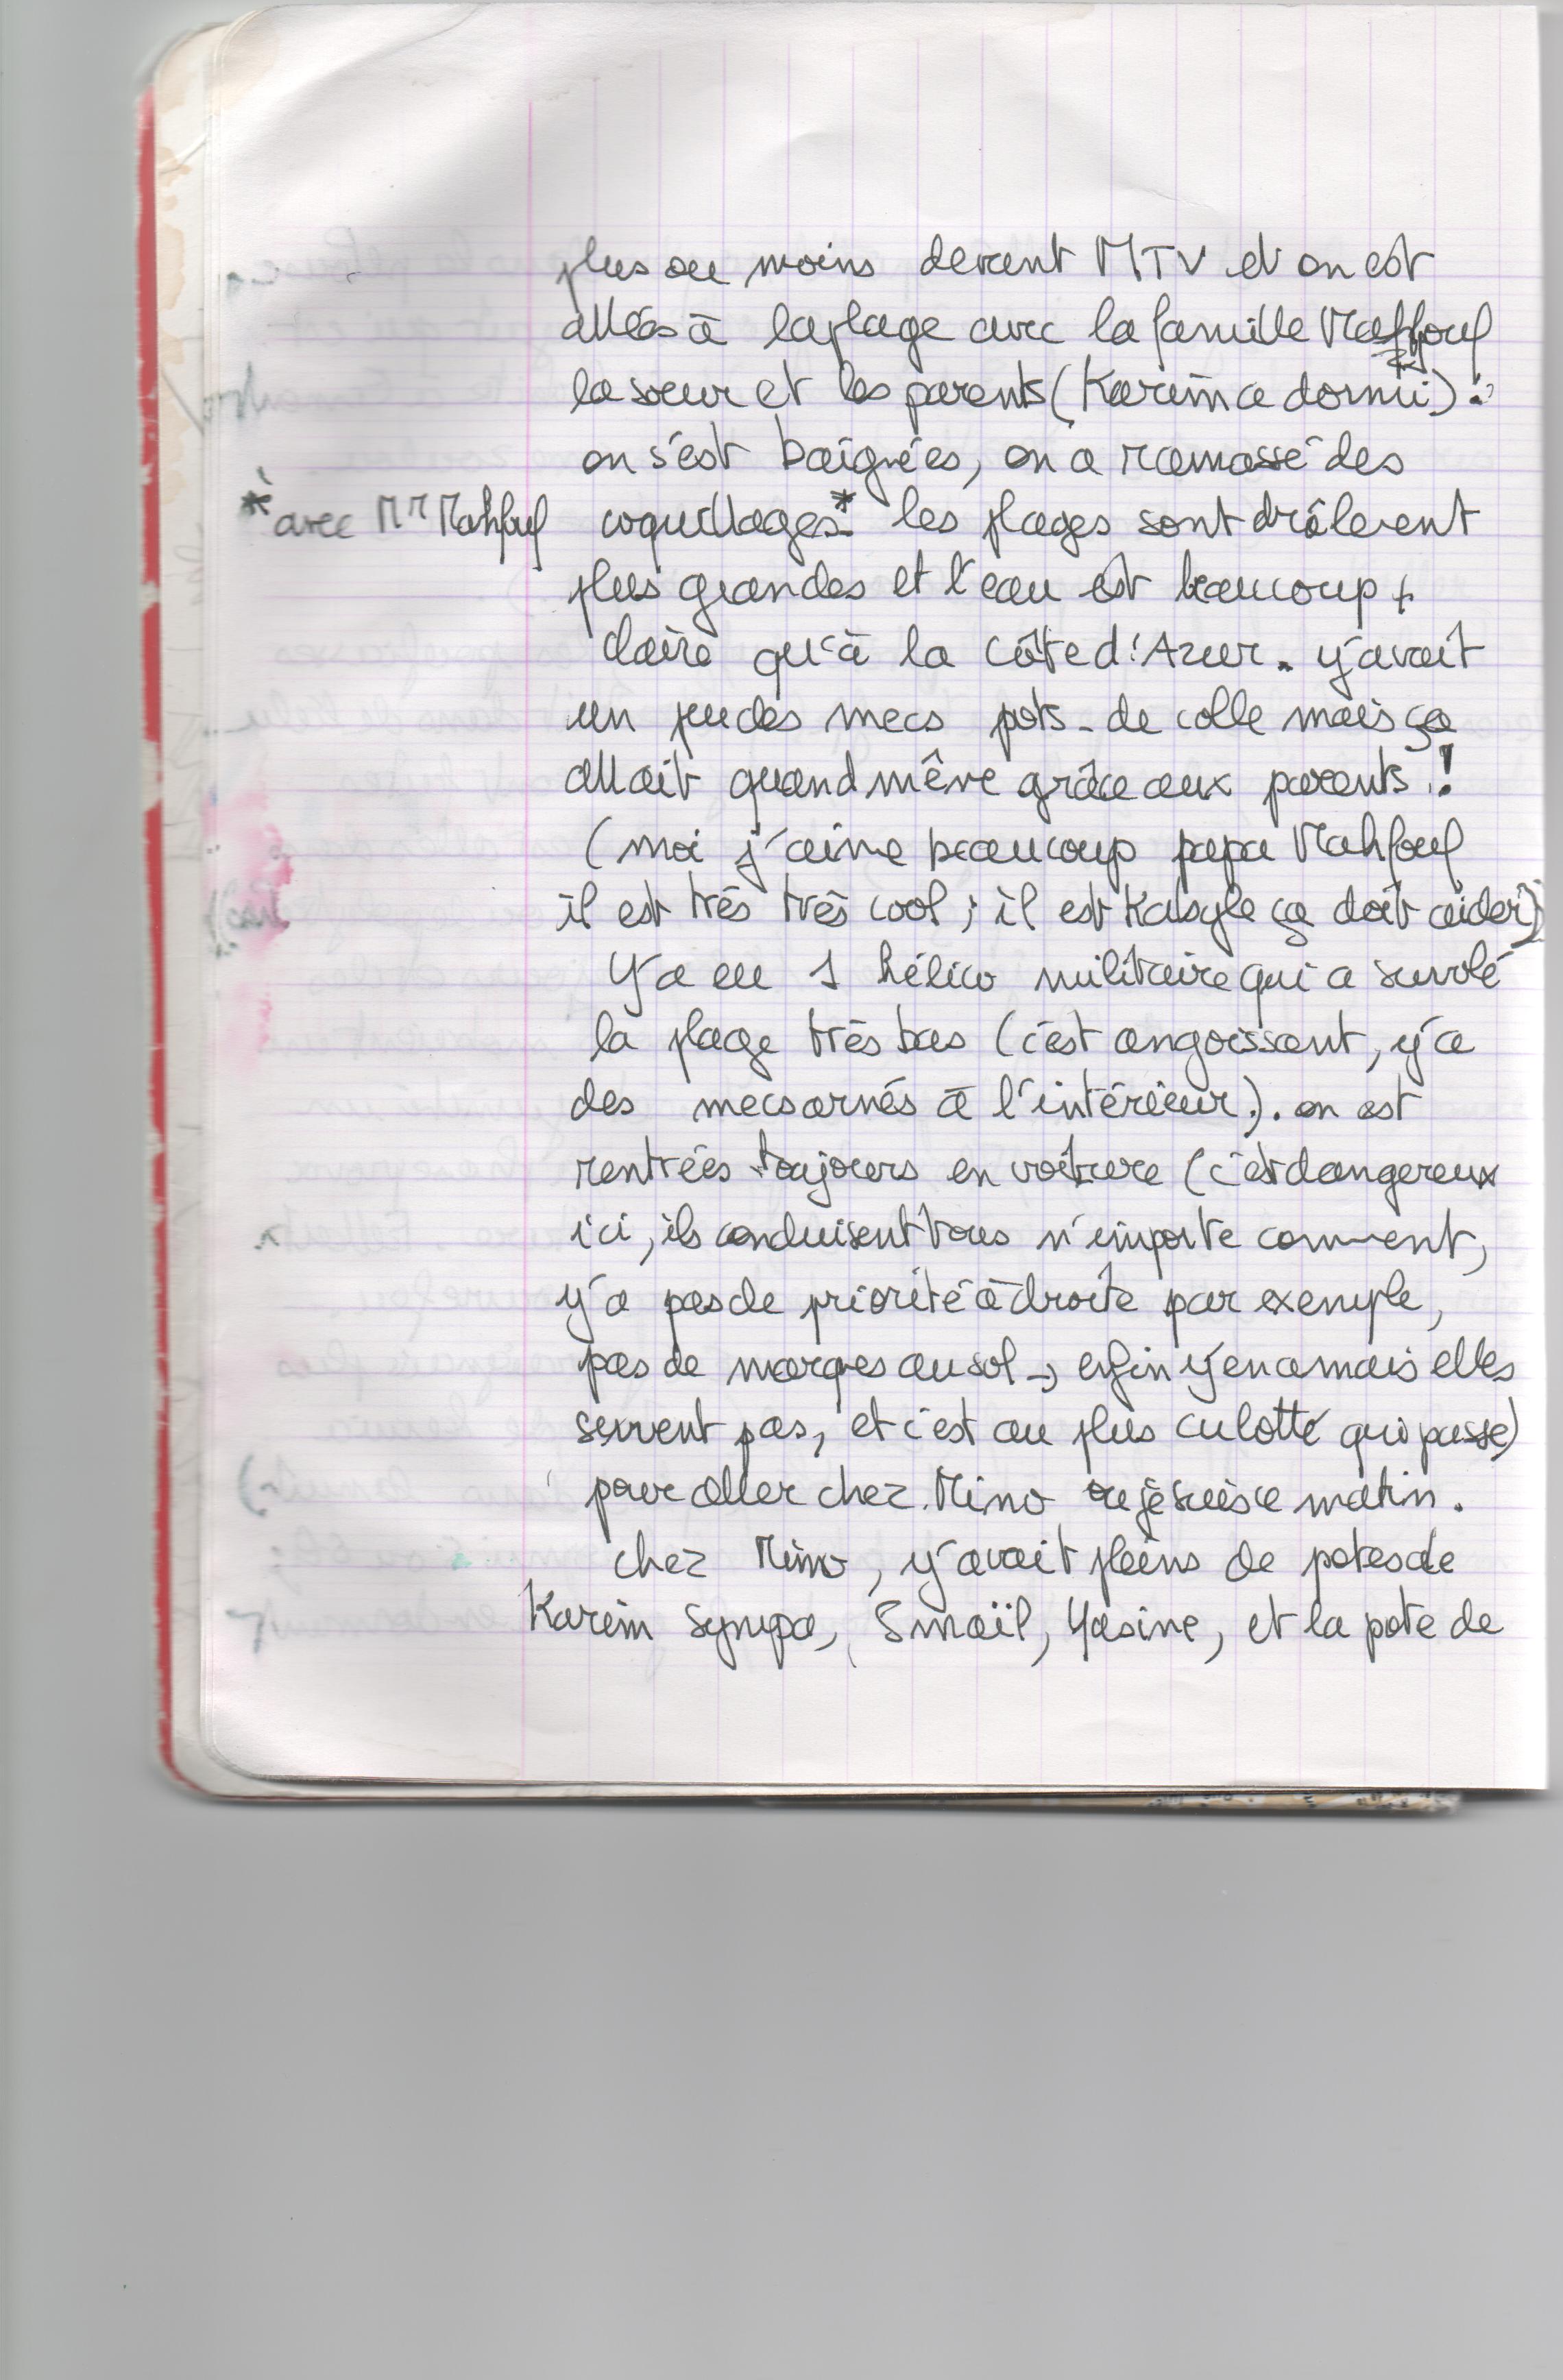 plus ou moins devant MTV et on est
allées à la plage avec la famille Mahfouf
la soeur et les parents (Karim a dormi) :
on s'est baignées, on a ramassé des
* avec Mr Mahfouf
coquillages*. les plages sont drôlement
plus grandes et l'eau est beaucoup +
claire qu'à la côte d'Azur. y'avait
un peu des mecs pots-de colle mais ça
allait quand même grâce aux parents !
(moi j'aime beaucoup papa Mahfouf
il est très très cool ; il est Kabyle ça doit aider)
Y'a eu 1 hélico militaire qui a survolé
la plage très bas (c'est angoissant, y'a
des mecs armés à l'intérieur). on est
rentrées toujours en voiture (c'est dangereux
ici, ils conduisent tous n'importe comment,
y'a pas de priorité à droite par exemple,
pas de marques au sol → enfin y'en a mais elles
servent pas, et c'est au plus culotté qui passe)
pour aller chez Mimo où je suis ce matin.
chez Mimo, y'avait pleins de potes de
Karim sympa, Smaïl, Yasine, et la pote de